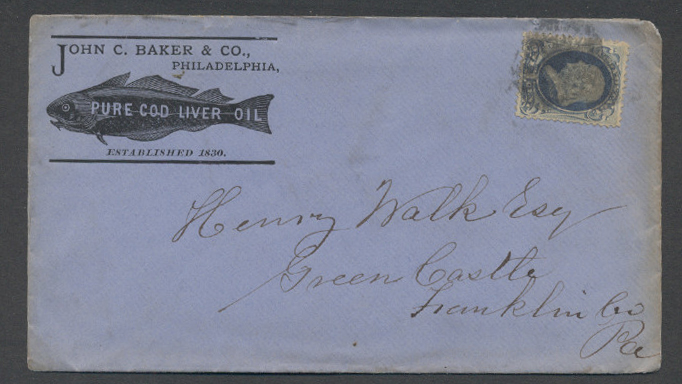 JOHN C. BAKER & CO.,
PHILADELPHIA,
PURE COD LIVER OIL
ESTABLISHED 1830.
Henry Walk Esq
Green Castle
Franklin Co
Pa